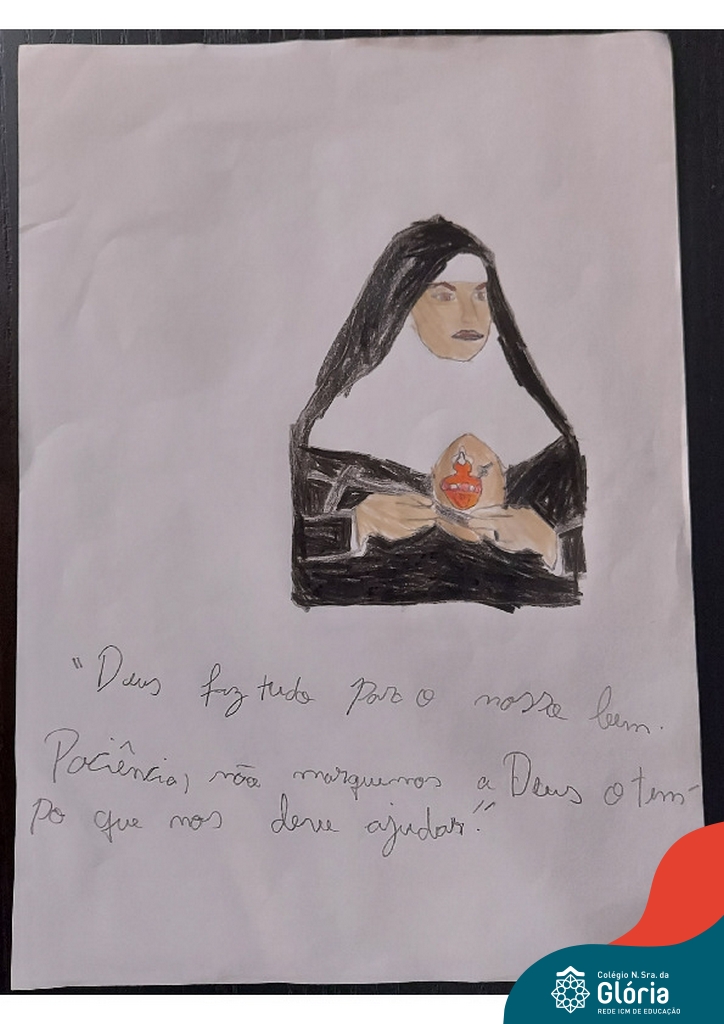 "Deus faz tudo para o nosso bem.
Paciência, não marquemos a Deus o tem-
po que nos deve ajudar."
Colégio N. Sra. da
Glória
REDE ICM DE EDUCAÇÃO